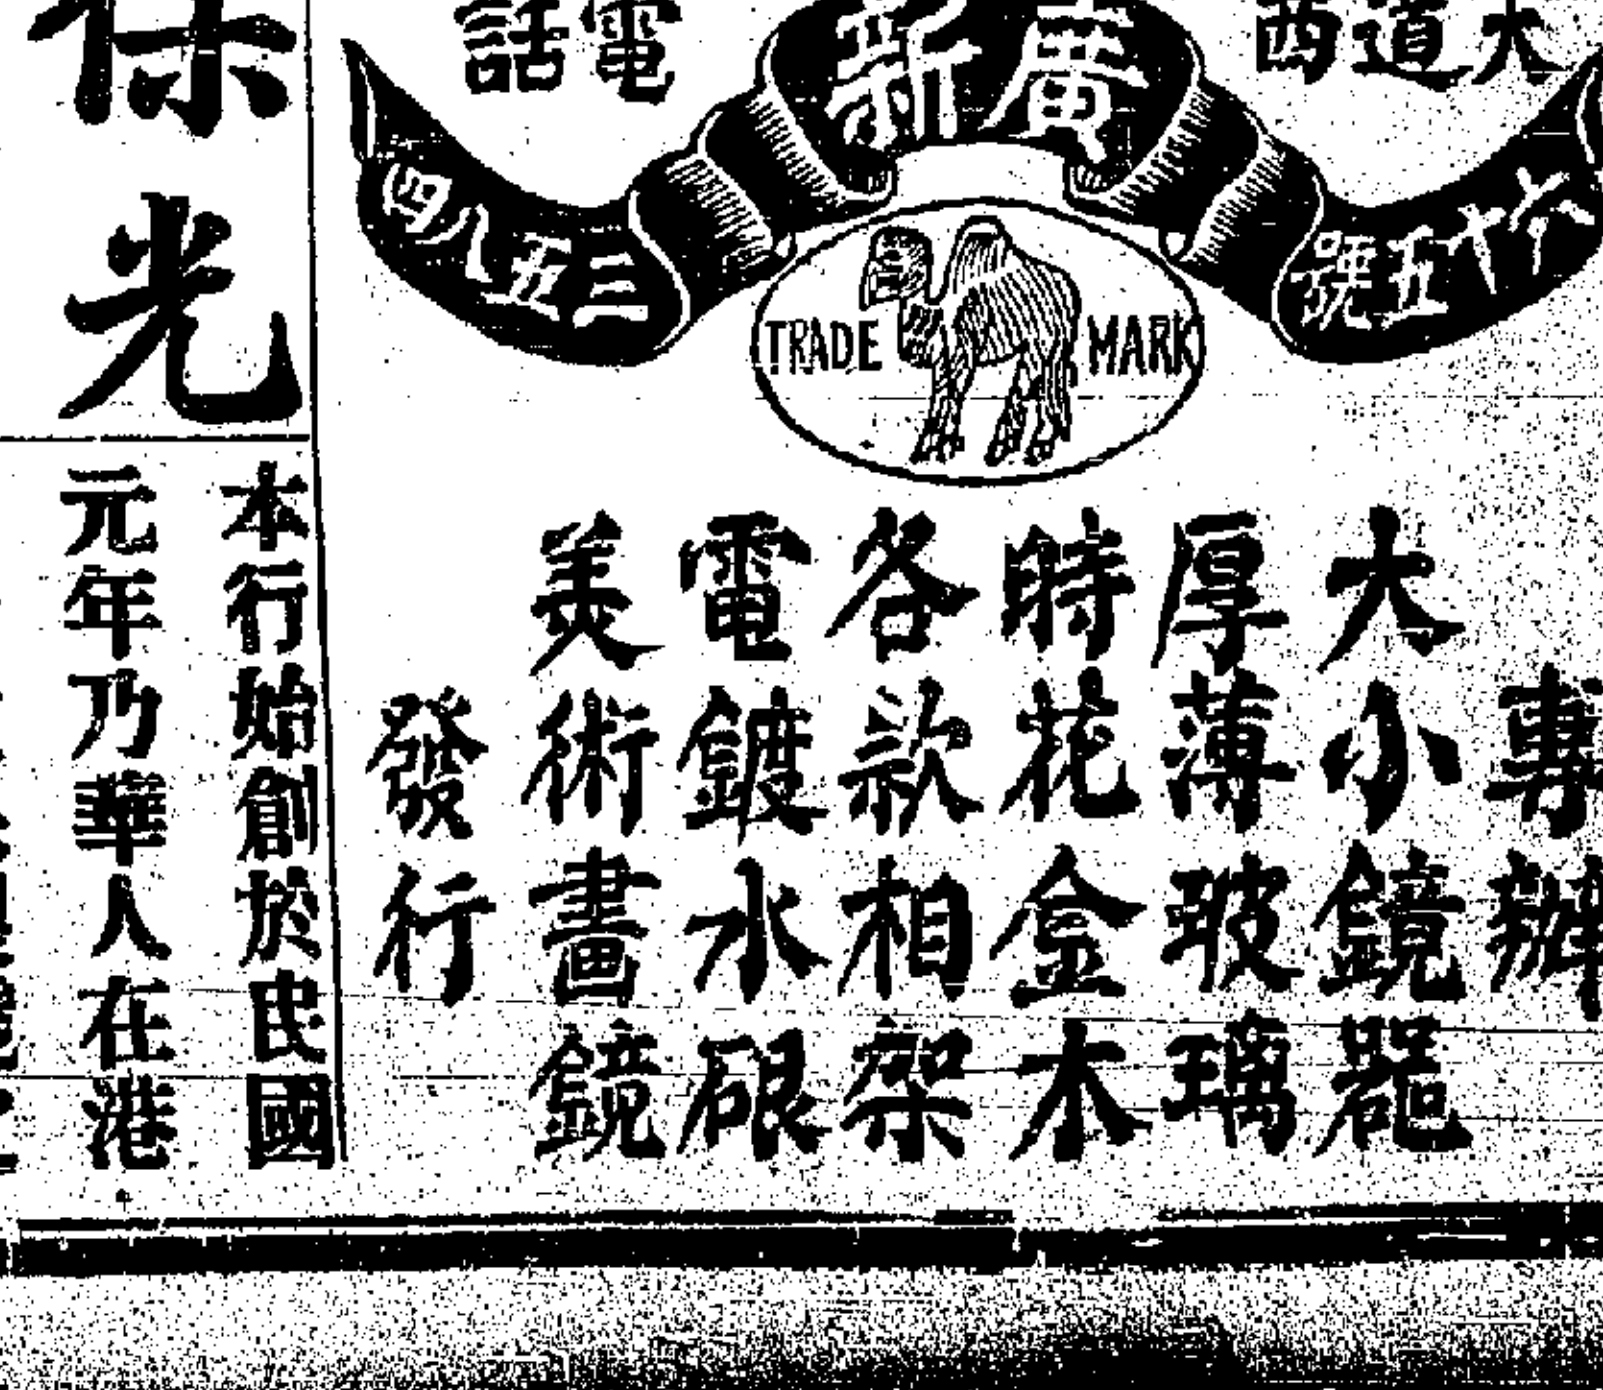 大道西
電話
廣新
六十五號
二五八四
TRADE MARK
專辦
大小鏡器
厚薄玻璃
時花金木
各款相架
電鍍水銀
美術畫鏡
發行
保光
本行始創於民國
元年乃華人在港